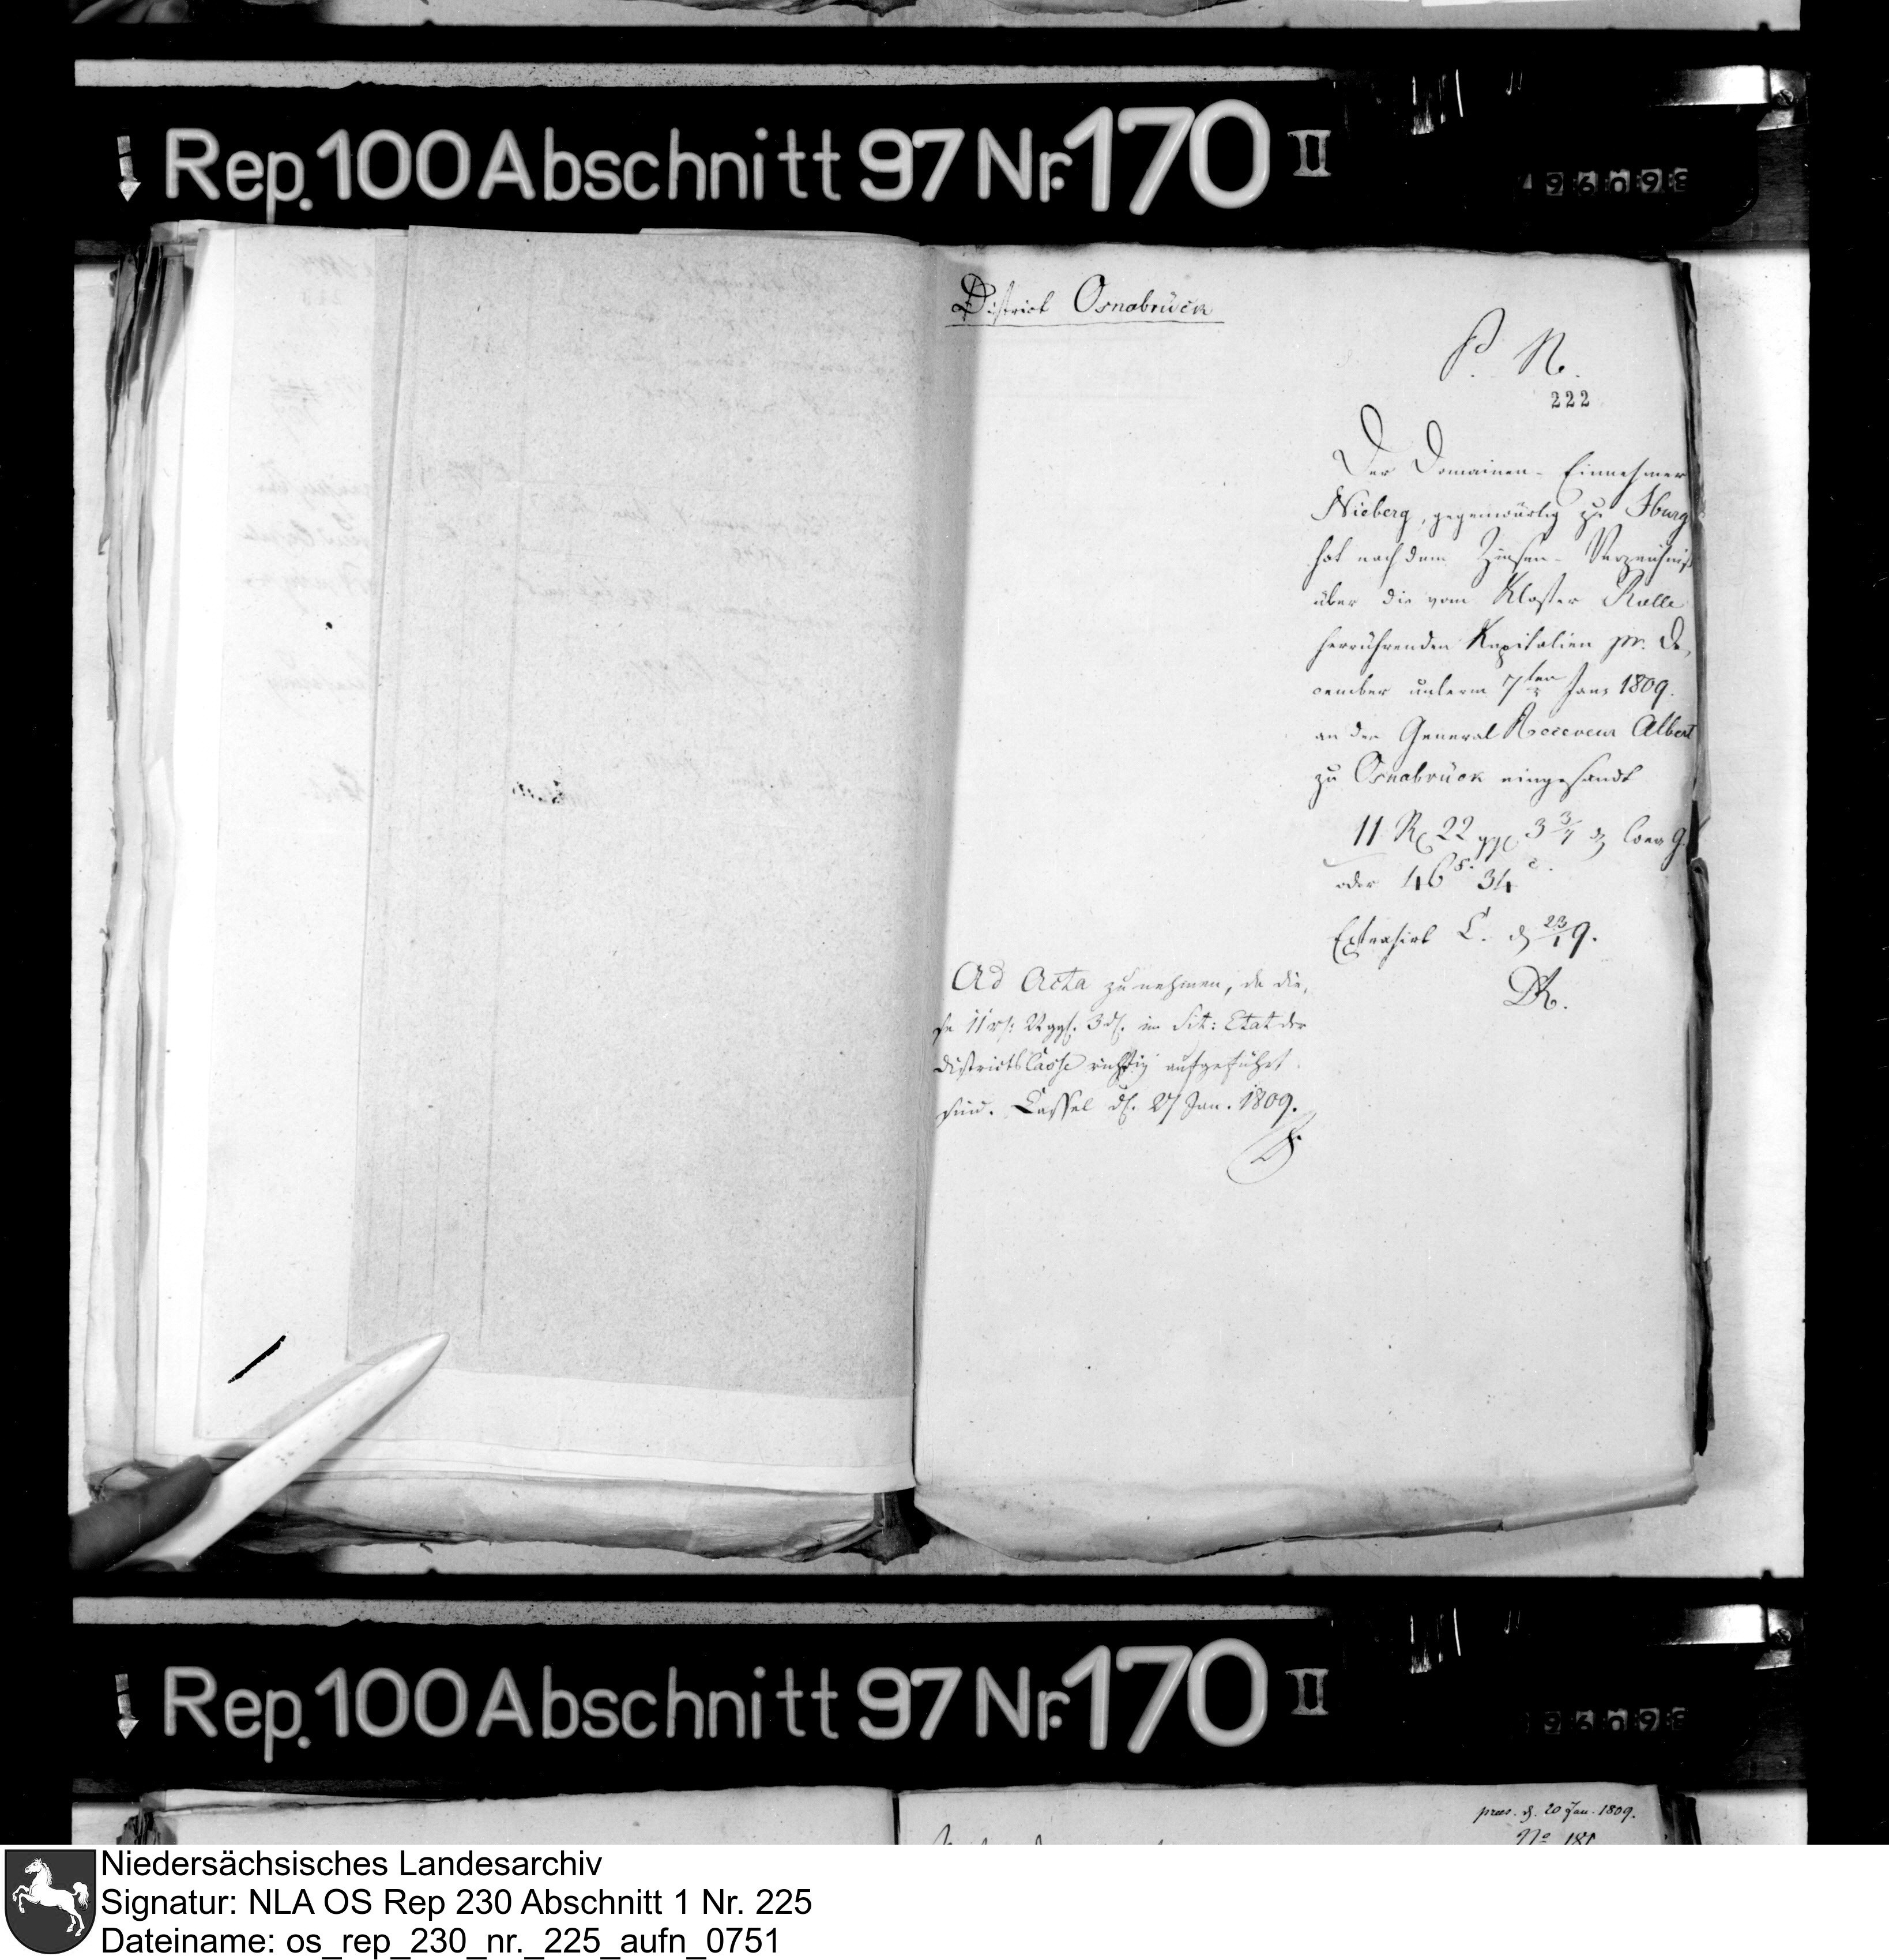 Rep. 100 Abschnitt 97 Nr. 170 II
District Osnabrück
P. N.
222
Der Domainen-Einnehmer
Nieberg, gegenwärtig zu Iburg
hat nach dem Zinsen-Verzeichniß
über die vom Kloster Rulle
herrührenden Kapitalien pr. De,
cember unterm 7ten Janr 1809.
an den General Receveur Albert
zu Osnabrück eingesandt
11 Rt 22 ggr 3 3/4 d Conv. G.
oder 46 Fr. 34 c.
Extrahirt C. d 23/1 9.
DR.
Ad Acta zu nehmen, da die,
se 11 rt: 22 ggl. 3 d. im Sit: Etat der
Districts Casse richtig aufgeführt
sind. Cassel d. 27 Jan. 1809.
Rep. 100 Abschnitt 97 Nr. 170 II
praes. d. 20 Jan. 1809.
No 181
Niedersächsisches Landesarchiv
Signatur: NLA OS Rep 230 Abschnitt 1 Nr. 225
Dateiname: os_rep_230_nr._225_aufn_0751